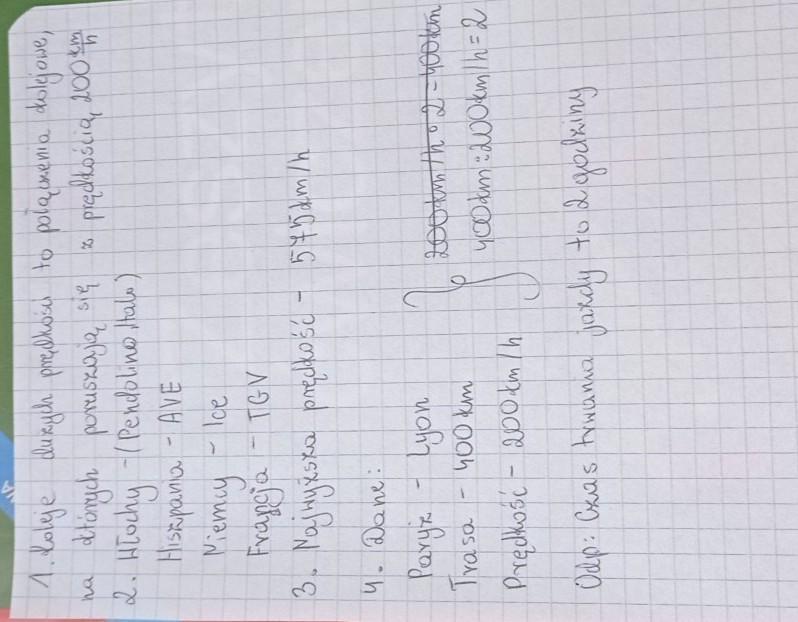 1. Koleje dużych prędkości to połączenia kolejowe,
na których poruszają się z prędkością 200 km/h
2. Włochy - (Pendolino, Italo)
Hiszpania - AVE
Niemcy - Ice
Francja - TGV
3. Najwyższa prędkość - 575 km/h
4. Dane:
Paryż - Lyon
Trasa - 400 km
Prędkość - 200 km/h
200 km/h • 2 = 400 km
400 km : 200 km/h = 2
Odp: Czas trwania jazdy to 2 godziny